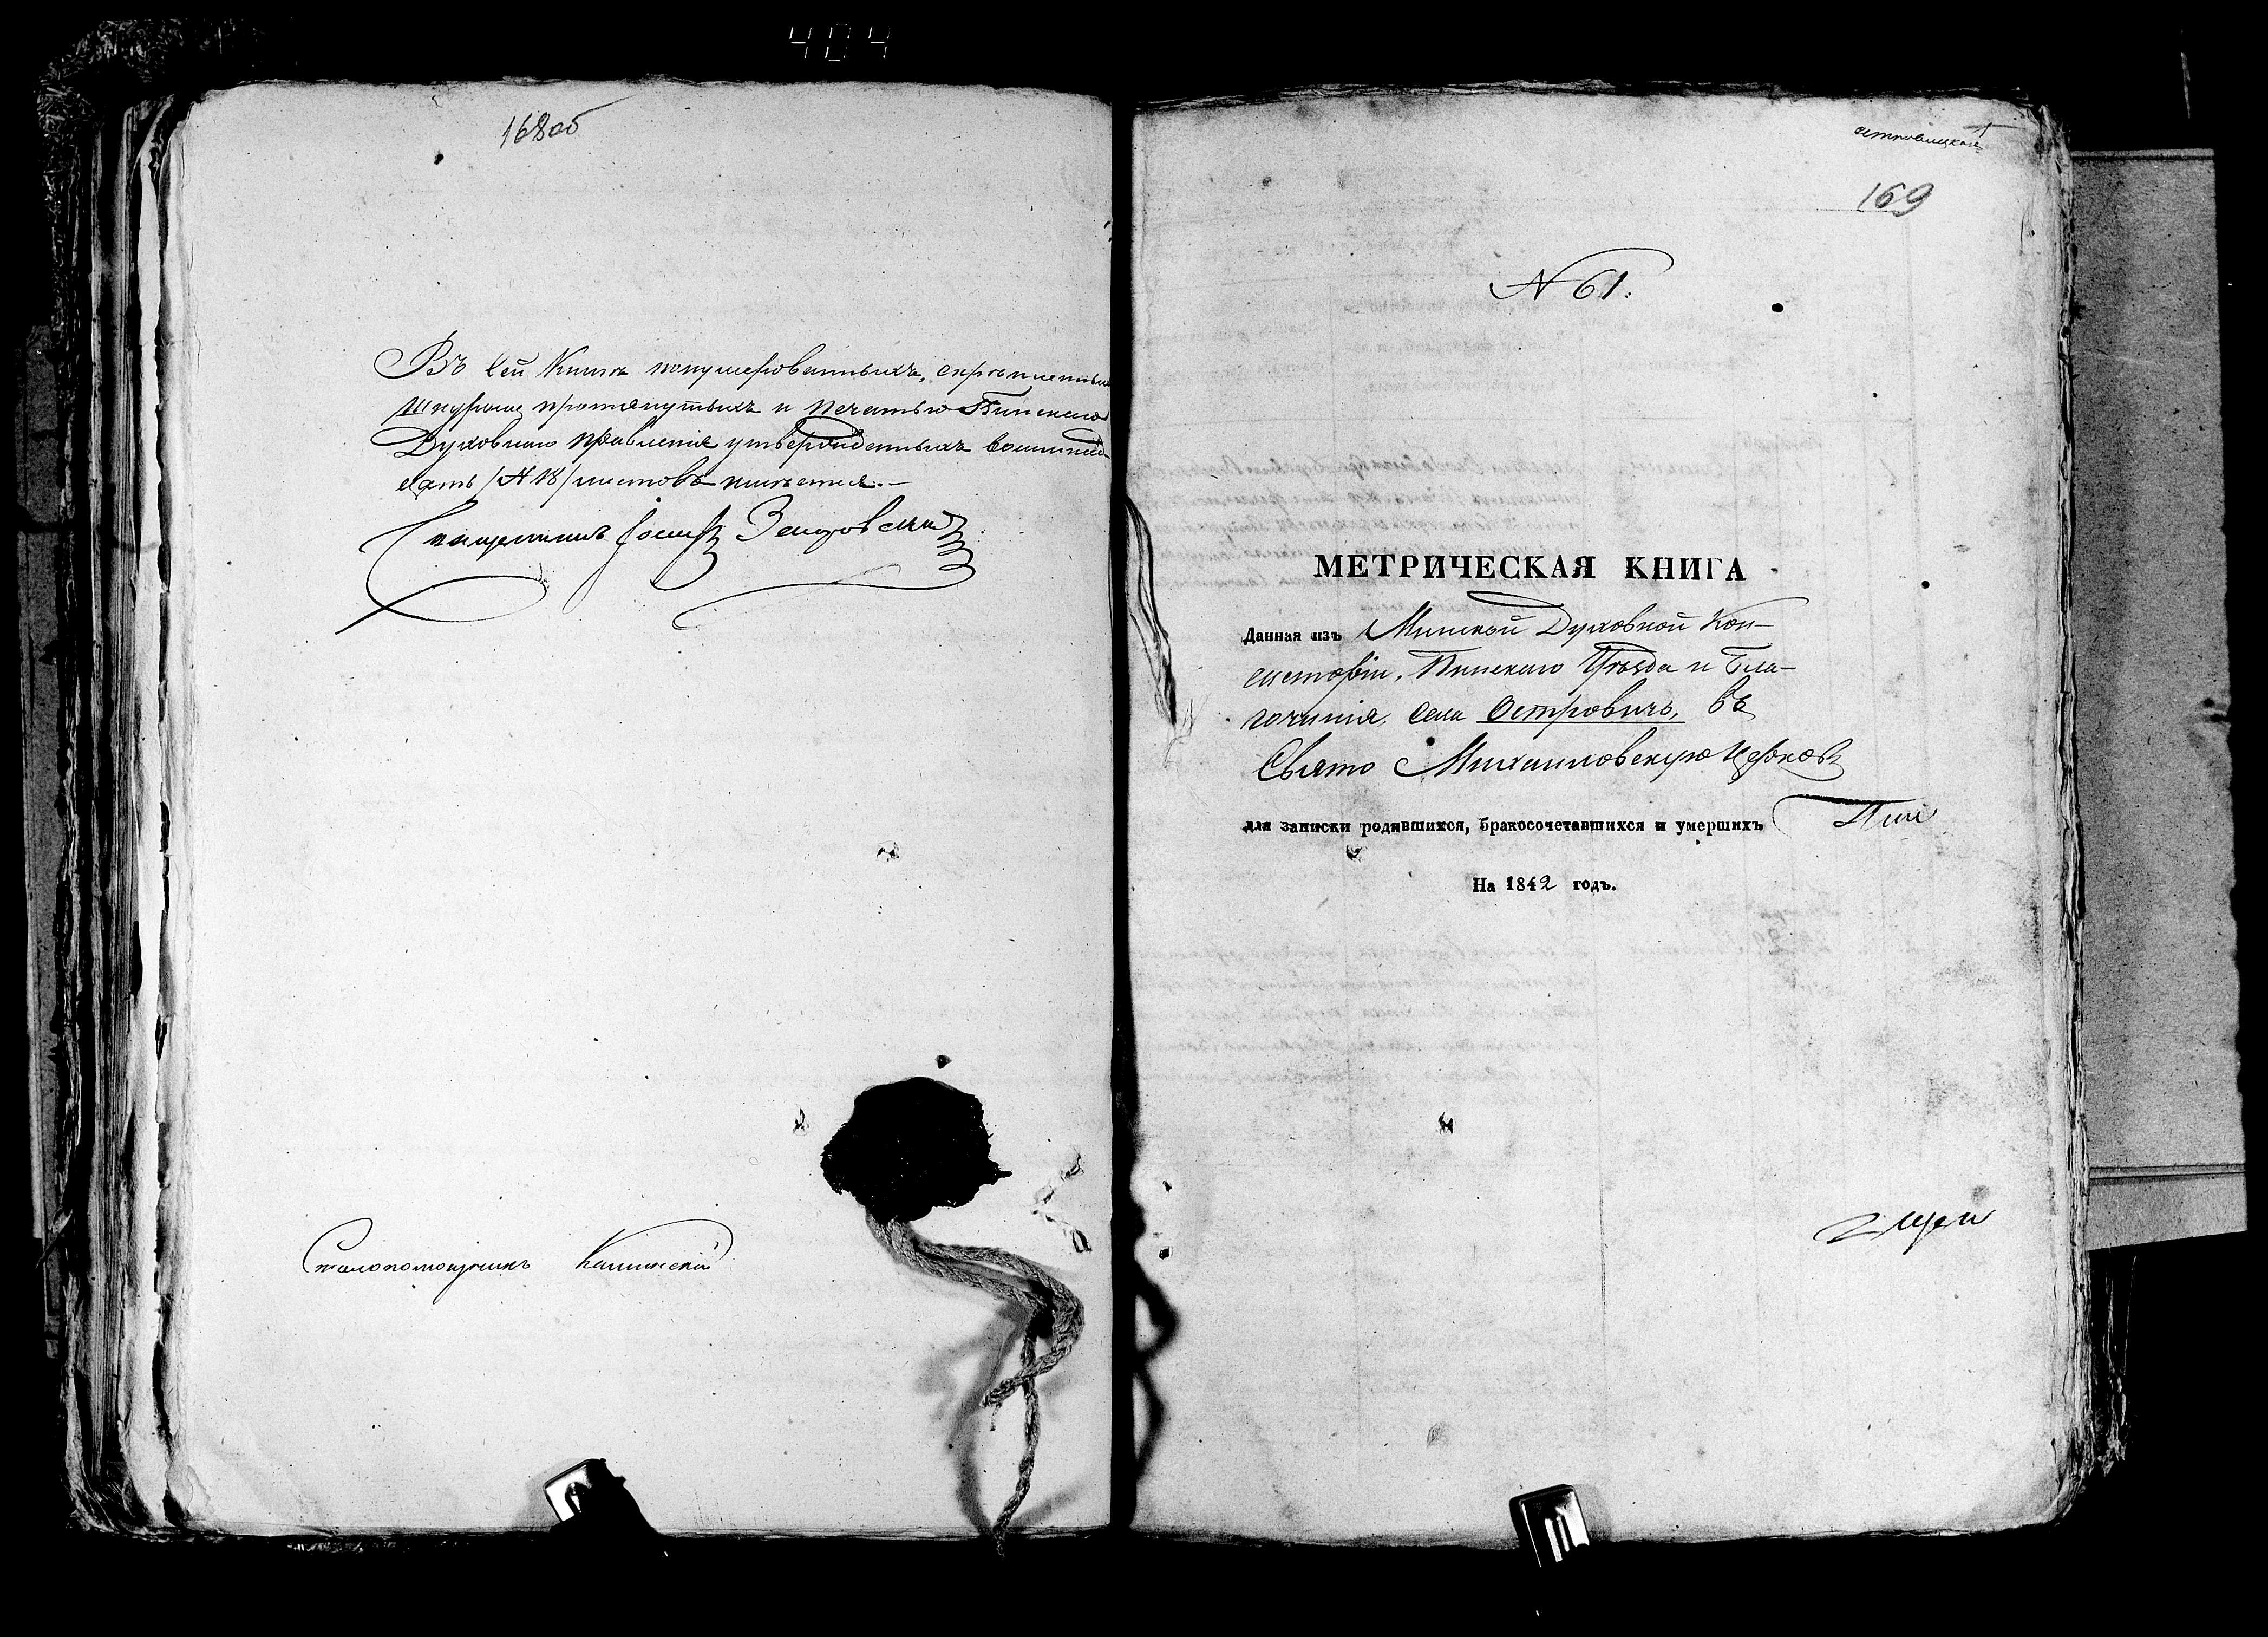 404
168об
Въ сей Книгѣ понумерованныхъ, скрѣпленныхъ
шнуромъ протянутыхъ и печатью Пинскаго
Духовнаго правленія утвержденныхъ восьмнад-
цать /№ 18/ листовъ имѣется.-
Священникъ Іосифъ
Столопомощникъ Калинскій
169
№ 61.
МЕТРИЧЕСКАЯ КНИГА
Данная изъ Минской Духовной Кон-
систоріи, Пинскаго Уѣзда и Бла-
гочинія, села Островичъ, въ
Свято Михаиловскую Церковь
для записки родившихся, бракосочетавшихся и умершихъ
На 1842 годъ.